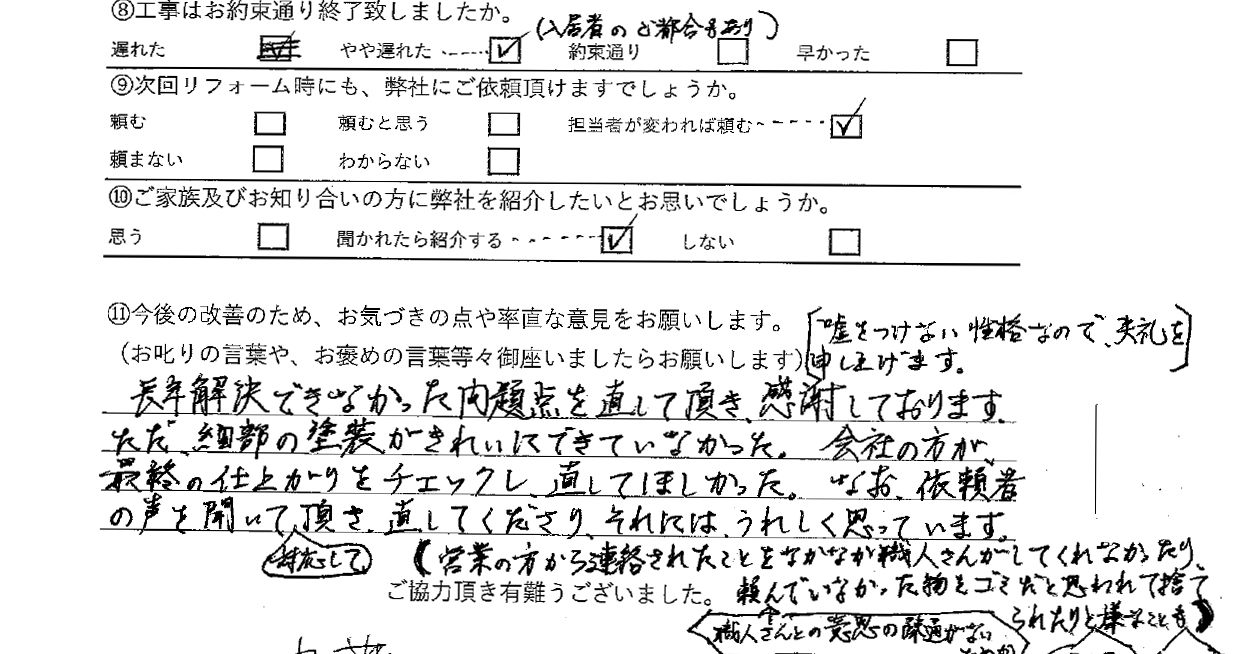 ⑧工事はお約束通り終了致しましたか。
(入居者のご都合もあり)
遅れた やや遅れた 約束通り 早かった
⑨次回リフォーム時にも、弊社にご依頼頂けますでしょうか。
頼む 頼むと思う 担当者が変われば頼む
頼まない わからない
⑩ご家族及びお知り合いの方に弊社を紹介したいとお思いでしょうか。
思う 聞かれたら紹介する しない
⑪今後の改善のため、お気づきの点や率直な意見をお願いします。
(お叱りの言葉や、お褒めの言葉等々御座いましたらお願いします)
[嘘をつけない性格なので、失礼を
申し上げます。]
長年解決できなかった問題点を直して頂き、感謝しております。
ただ、細部の塗装がきれいにできていなかった。会社の方が、
最終の仕上がりをチェックし、直してほしかった。なお、依頼者
の声を聞いて頂き、直してくださり、それには、うれしく思っています。
対応して
(営業の方から連絡されたことをなかなか職人さんがしてくれなかったり、
ご協力頂き有難うございました。
頼んでいなかった物をゴミだと思われて捨て
られたりと様々なことも)
職人さんとの意思の疎通がない